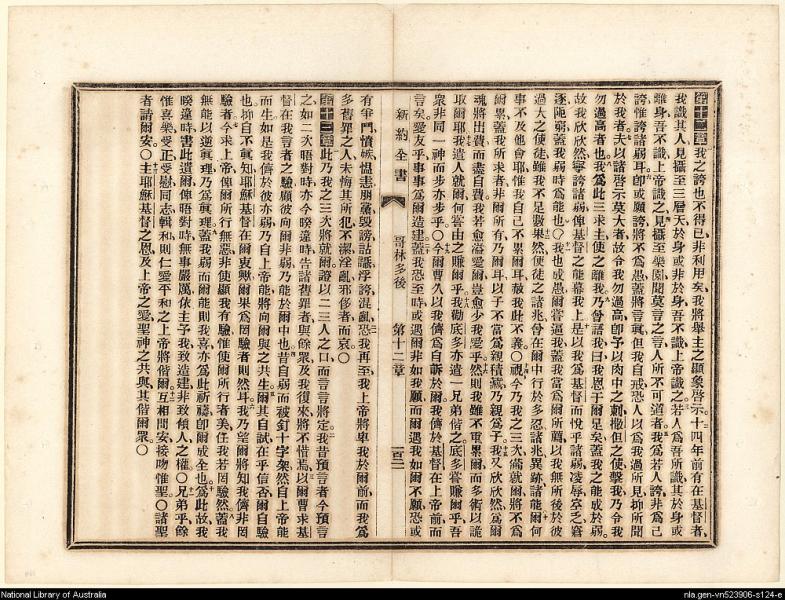 第十二章我之誇也不得已非利用矣我將舉主之顯象啓示十四年前有在基督者
我識其人見攝至三層天於身或非於身吾不識上帝識之若人爲吾所識其於身或
離身吾不識上帝識之見攝至樂園聞莫言之言人所不可道者我爲若人誇非爲己
誇惟誇諸弱耳卽或願誇將不爲愚蓋將言眞但我自戒恐人以爲我過所見抑所聞
於我者夫以諸啓示莫大者故令我勿過高卽予以肉中之刺撒但之使擊我乃令我
勿過高者也我爲此三求主使之離我乃曾諾我曰我恩于爾足矣蓋我之能成於弱
故我欣欣然寧誇諸弱俾基督之能幕我上是以我爲基督而悅乎諸弱凌辱窒乏窘
逐阨窮蓋我弱時爲能也○我也成愚爾嘗逼我蓋我當爲爾所薦以我無所後於彼
過大之使徒雖我不足數果然使徒之諸兆曾在爾中行於多忍諸兆異跡諸能爾何
事不及他會耶惟我自己不累爾耳赦我此不義○視今乃我之三次備就爾將不爲
爾累蓋我所求者非爾所有乃爾耳以子不當爲親積藏乃親爲子我又欣欣然爲爾
魂將出費而盡自費我若愈溢愛爾豈愈少我愛乎然則我雖不重累爾而多術以詭
取爾耶我遣人就爾何嘗由之賺爾乎我勸底多亦遣一兄弟偕之底多嘗賺爾乎吾
衆非同一神而步亦步乎○今爾曹久以我儕爲自訴於爾我儕於基督在上帝前而
言矣愛友乎事事爲爾造建蓋我恐至時或遇爾非如我願而爾遇我如爾不願恐或
新約全書 哥林多後 第十二章 一百二
有爭鬥憤嫉慍恚朋黨毀謗詀讘浮誇混亂恐我再至我上帝將卑我於爾前而我爲
多舊罪之人未悔其所犯不潔淫亂邪侈者而哀○
第十三章此乃我之三次將就爾證以二三人之口而言言將定我昔預言者今預言
之如二次晤對時亦今暌違時告諸舊罪者與餘衆及我復來將不惜焉以爾曹求基
督在我言者之驗願彼向爾非弱乃能於爾中也昔自弱而被釘十字架然自上帝能
而生如是我儕於彼亦弱乃自上帝能將向爾與之共生爾其自試在乎信否爾自驗
也抑自不眞知耶穌基督在爾衷歟爾果爲罔驗者則然耳我乃望爾將知我儕非罔
驗者今求上帝俾爾所行無惡非使顯我有驗惟使爾所行者美任我若罔驗然蓋我
無能以逆眞理乃爲眞理蓋我弱而爾能則我喜亦爲此祈禱卽爾成全也爲此故我
暌違時書此遺爾俾晤對時無事嚴厲依主予我致造建非致傾人之權○兄弟乎餘
惟喜樂受正受慰同志輯和則仁愛平和之上帝將偕爾互相問安接吻惟聖○諸聖
者請爾安○主耶穌基督之恩及上帝之愛聖神之共與其偕爾衆○
National Library of Australia
nla.gen-vn523906-s124-e